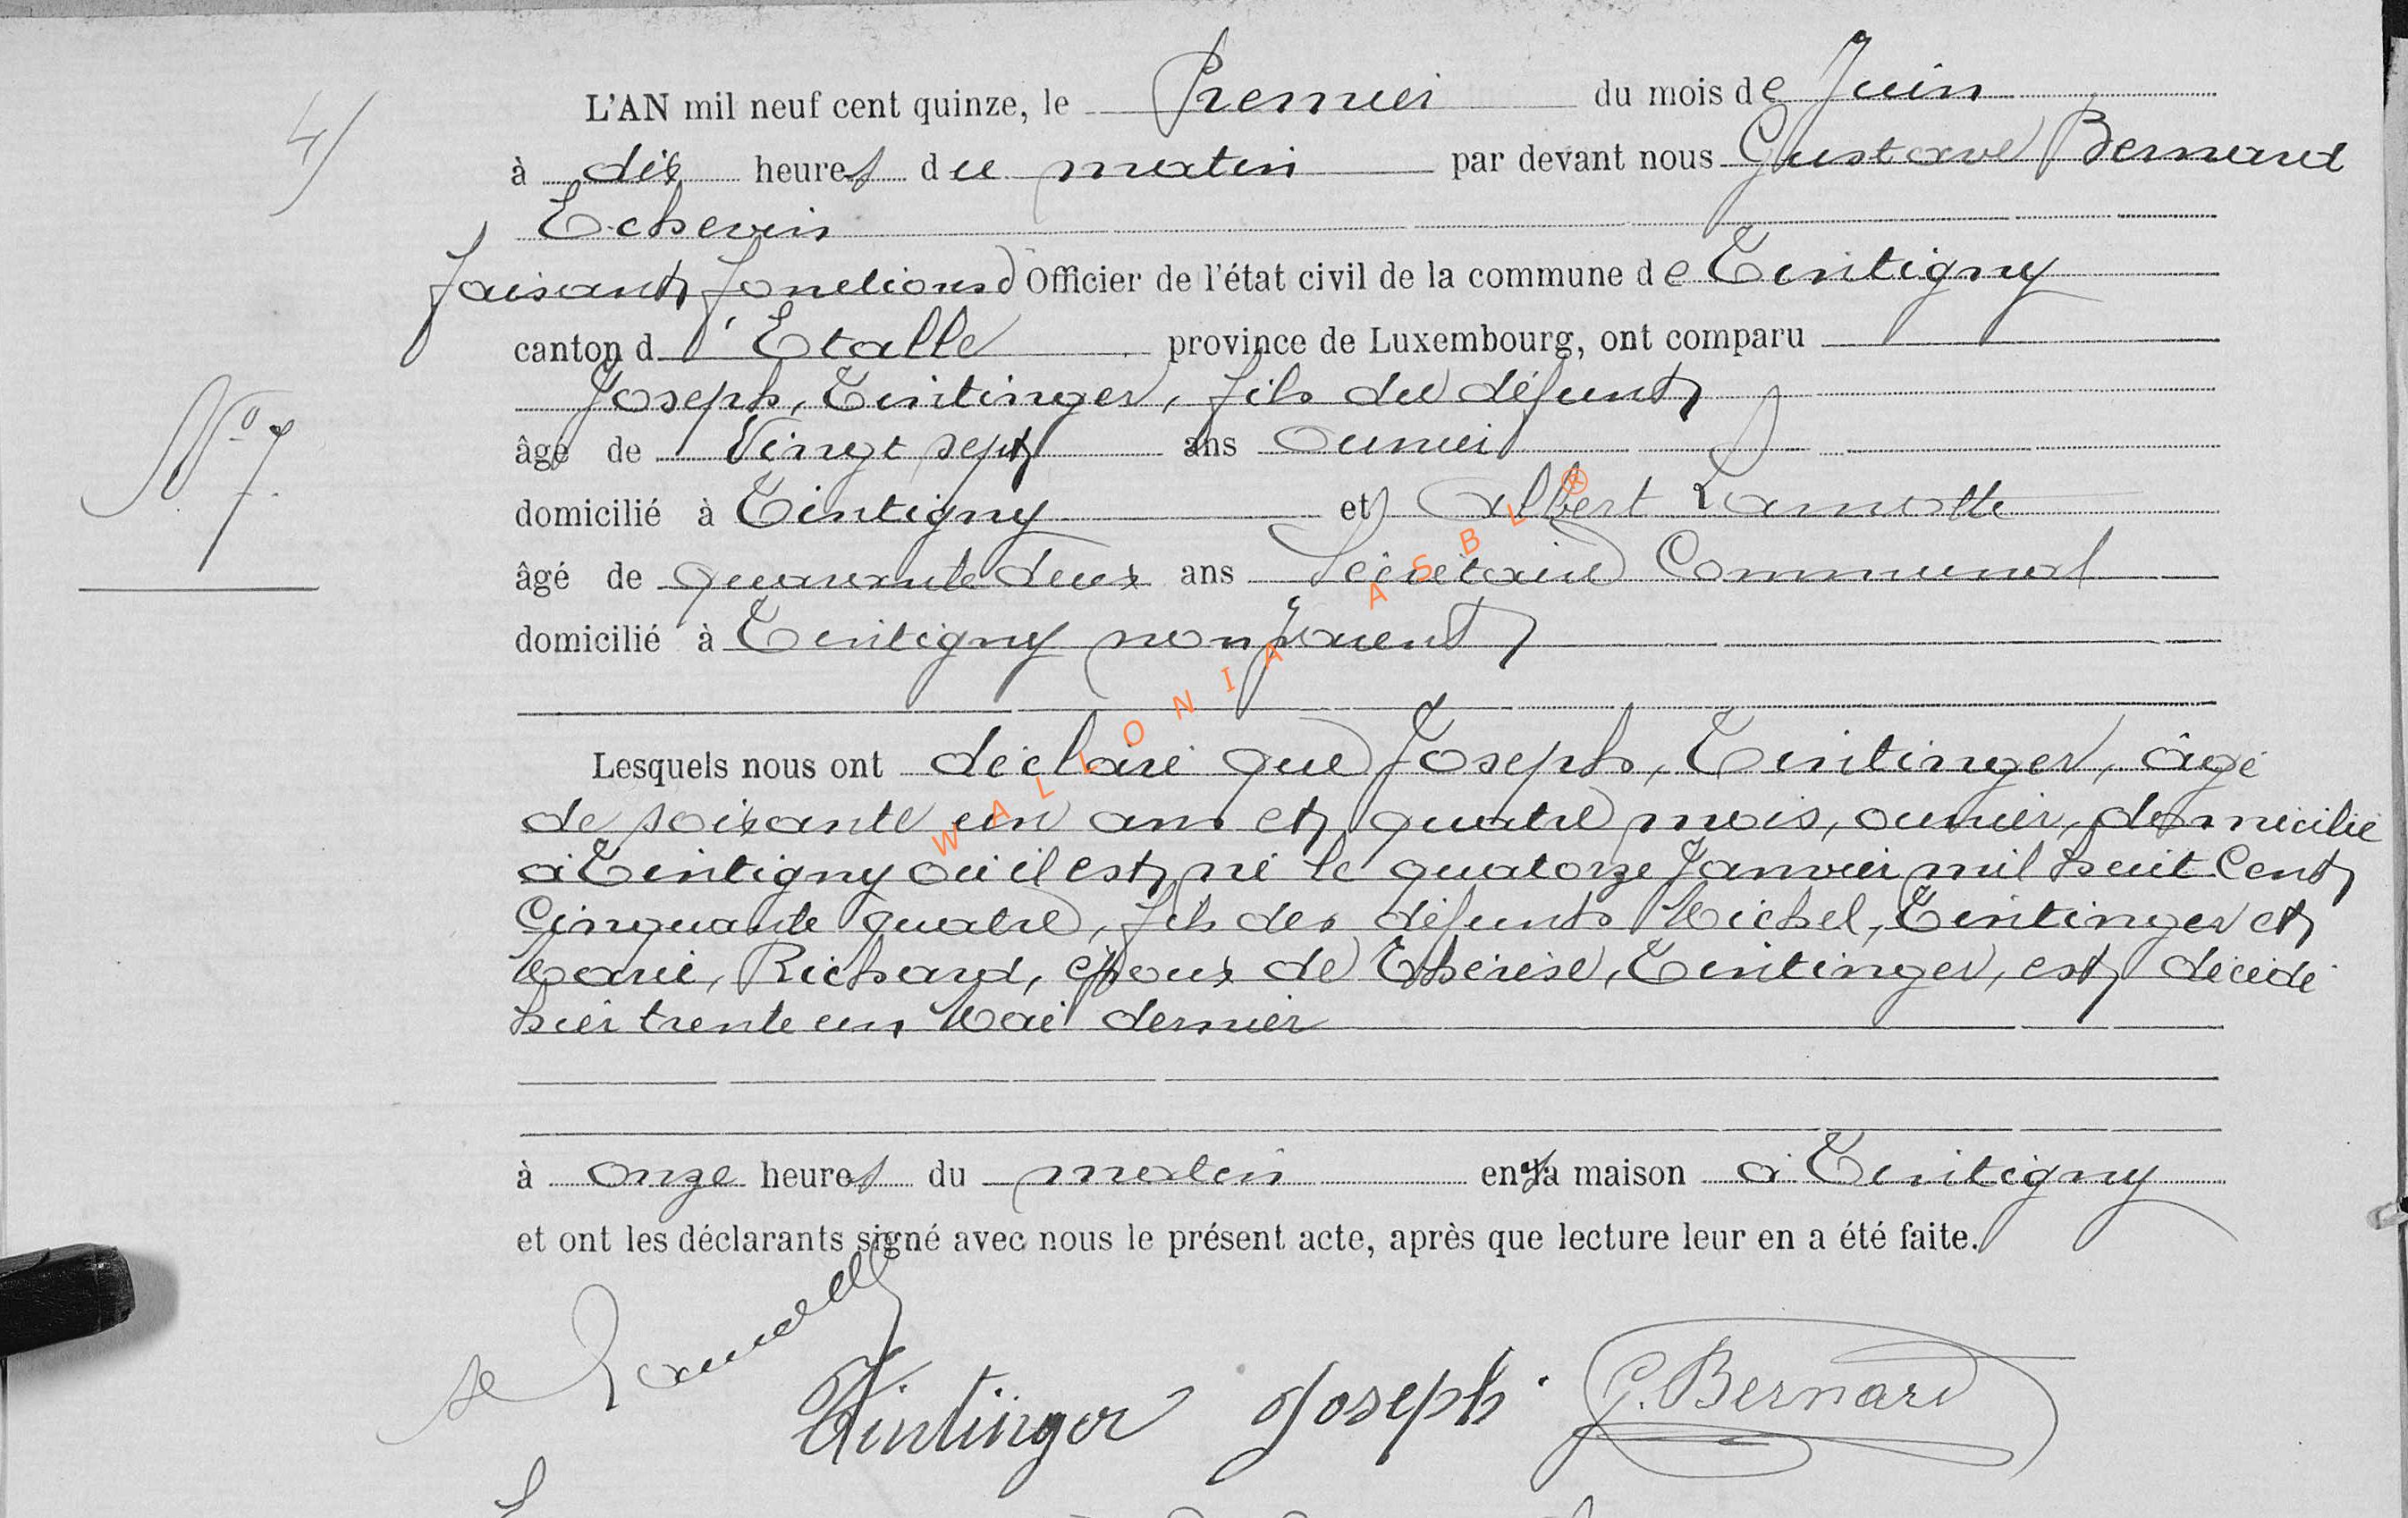 4)
L'AN mil neuf cent quinze, le Premier du mois de Juin
à dix heures du matin par devant nous Gustave Bernard
Echevin
faisant fonctions d'Officier de l'état civil de la commune de Tintigny
canton d'Etalle province de Luxembourg, ont comparu
Joseph, Tintinger, fils du défunt
N° 7
âgé de Vingt sept ans ouvrier
domicilié à Tintigny et Albert Lamotte
âgé de quarante deux ans Secrétaire Communal
domicilié à Tintigny non parent
Lesquels nous ont déclaré que Joseph, Tintinger, âgé
de soixante un ans et quatre mois, ouvrier, domicilié
à Tintigny où il est né le quatorze Janvier mil huit Cent
Cinquante quatre, fils des défunts Michel, Tintinger et
Marie, Richard, époux de Thérèse, Tintinger, est décédé
hier trente un Mai dernier
à onze heures du matin en sa maison à Tintigny
et ont les déclarants signé avec nous le présent acte, après que lecture leur en a été faite.
Lamotte
Tintinger Joseph. G. Bernard
WALLONIA ASBL ®